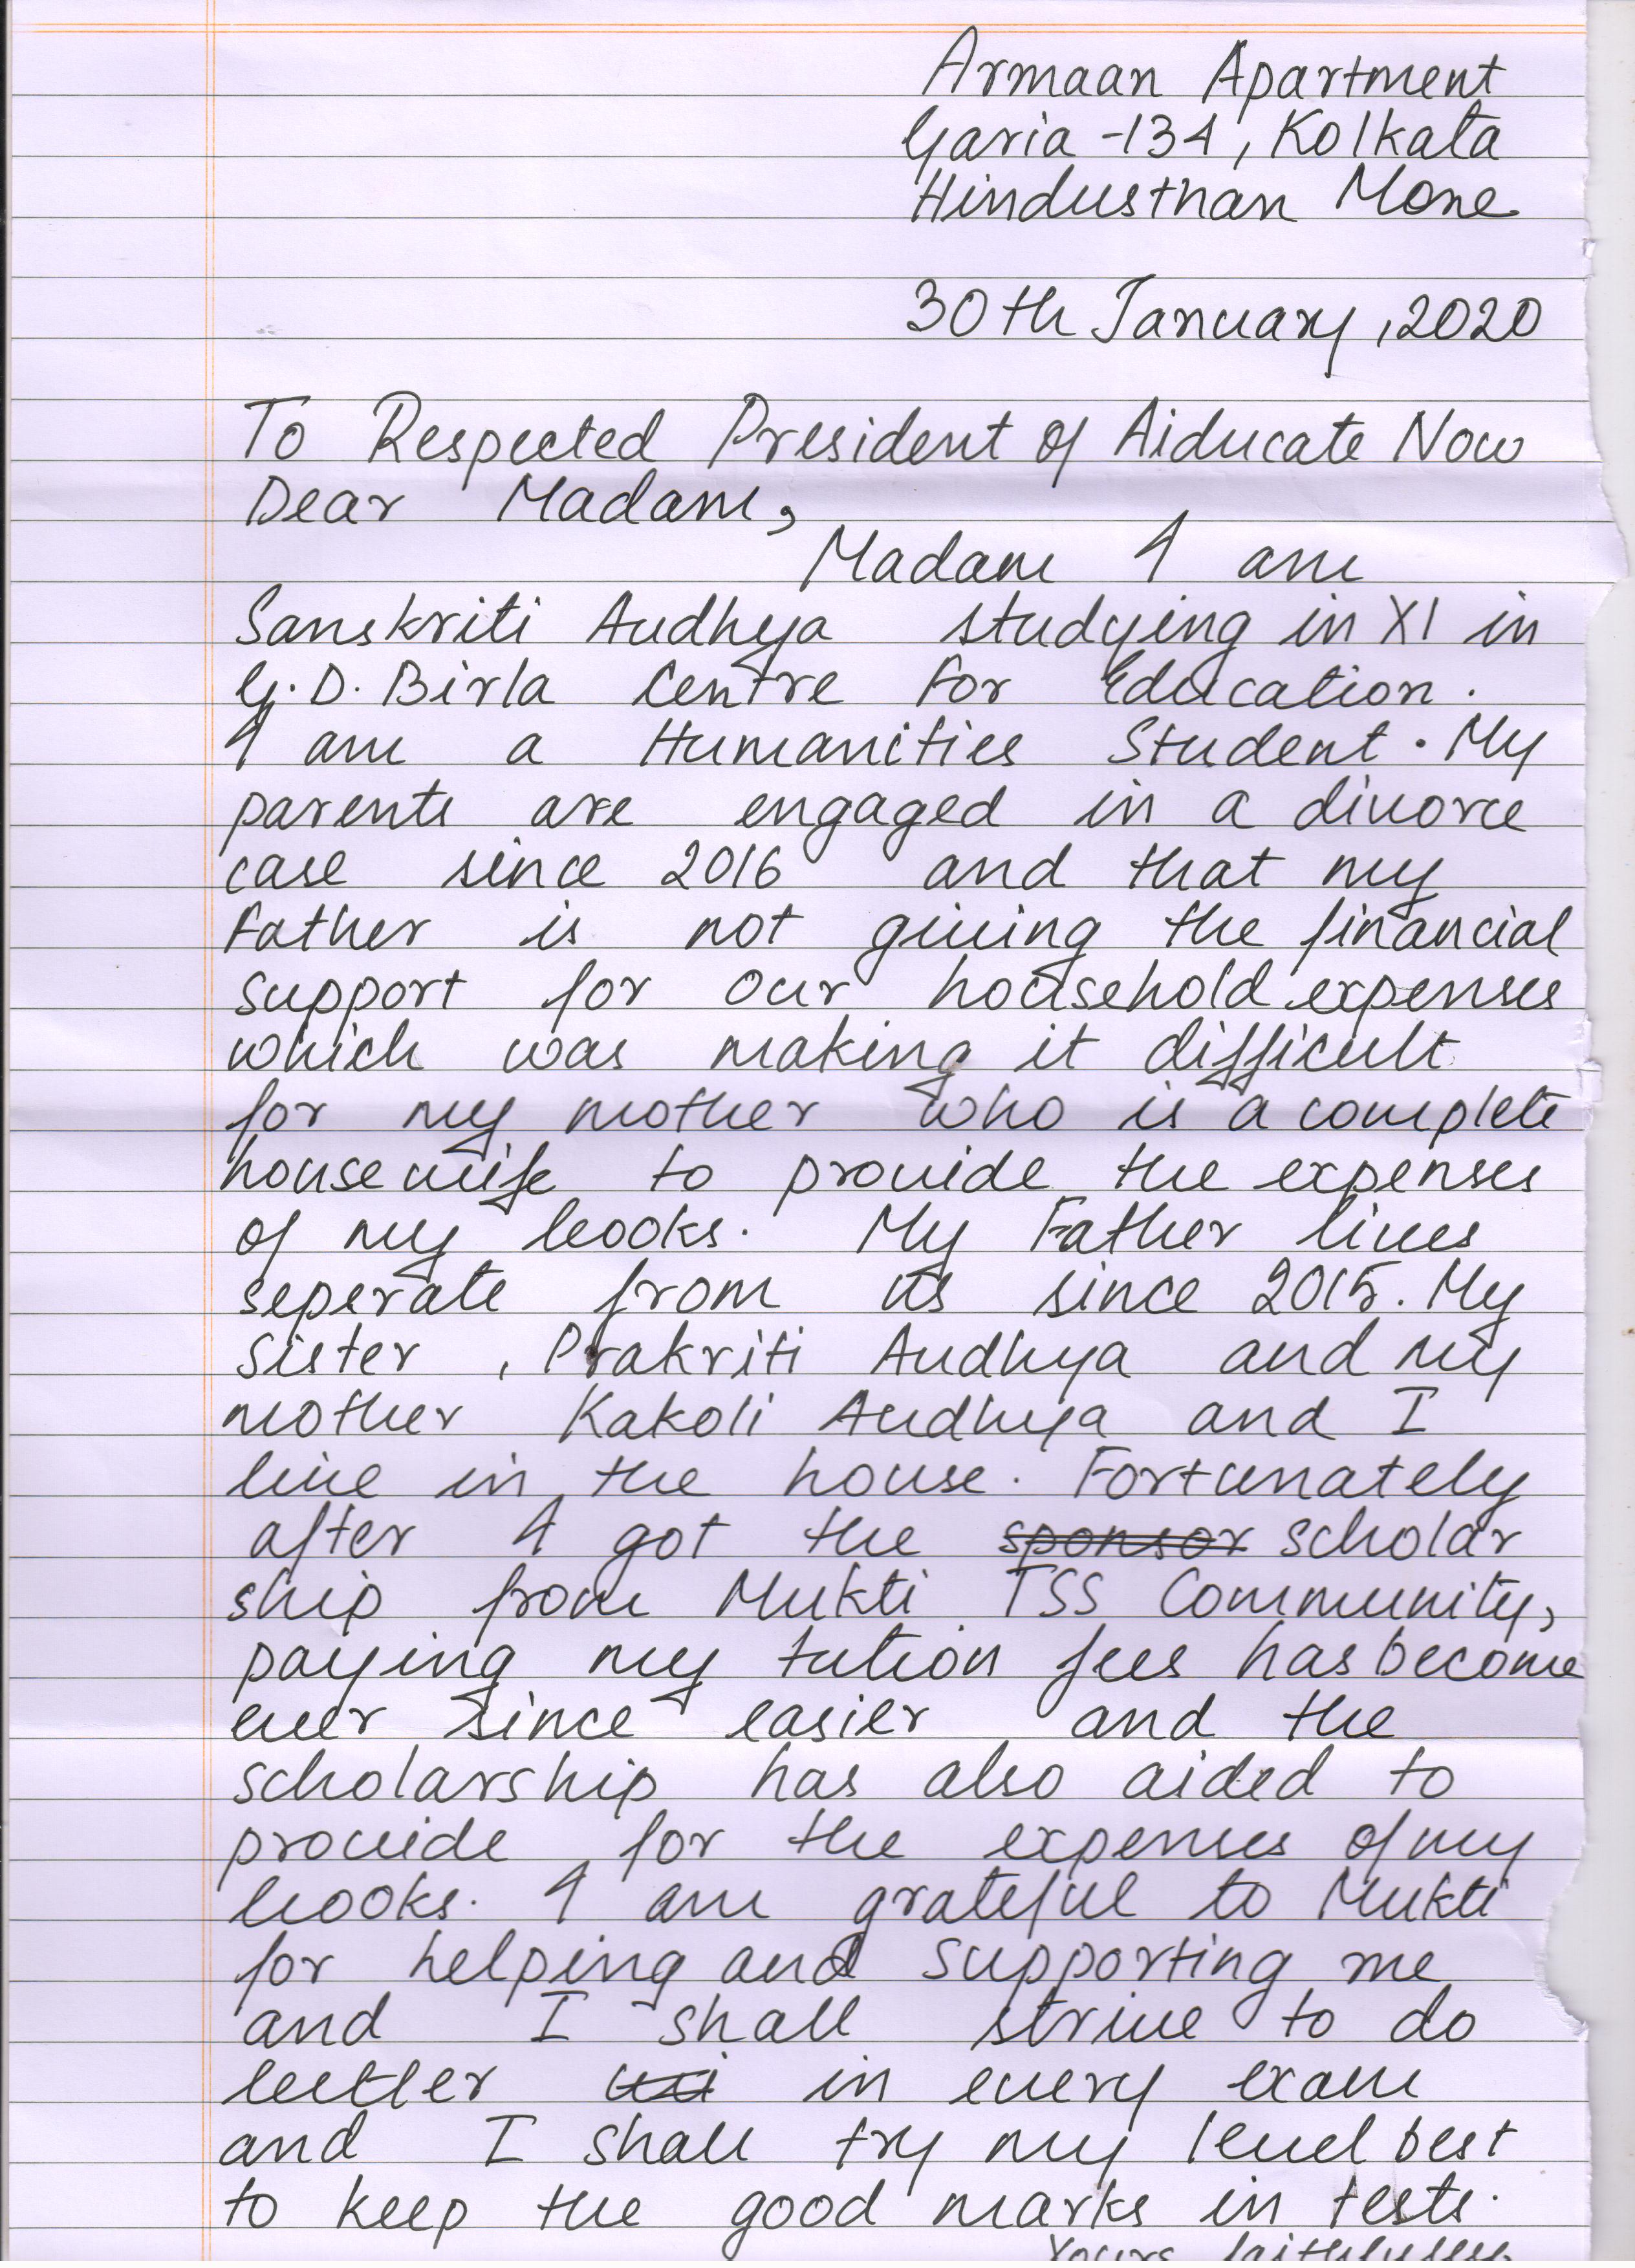 Armaan Apartment
Garia -134, Kolkata
Hindusthan More
30th January, 2020
To Respected President of Aiducate Now
Dear Madam,
Madam I am
Sanskriti Audhya studying in XI in
G.D. Birla Centre For Education.
I am a Humanities Student. My
parents are engaged in a divorce
case since 2016 and that my
Father is not giving the financial
support for our household expenses
which was making it difficult
for my mother who is a complete
housewife to provide the expenses
of my books. My Father lives
seperate from us since 2015. My
sister, Prakriti Audhya and my
mother Kakoli Audhya and I
live in the house. Fortunately
after I got the sponsor scholar
ship from Mukti TSS Community,
paying my tution fees has become
ever since easier and the
scholarship has also aided to
provide for the expenses of my
books. I am grateful to Mukti
for helping and supporting me
and I shall strive to do
better in every exam
and I shall try my level best
to keep the good marks in tests.
Yours faithfully